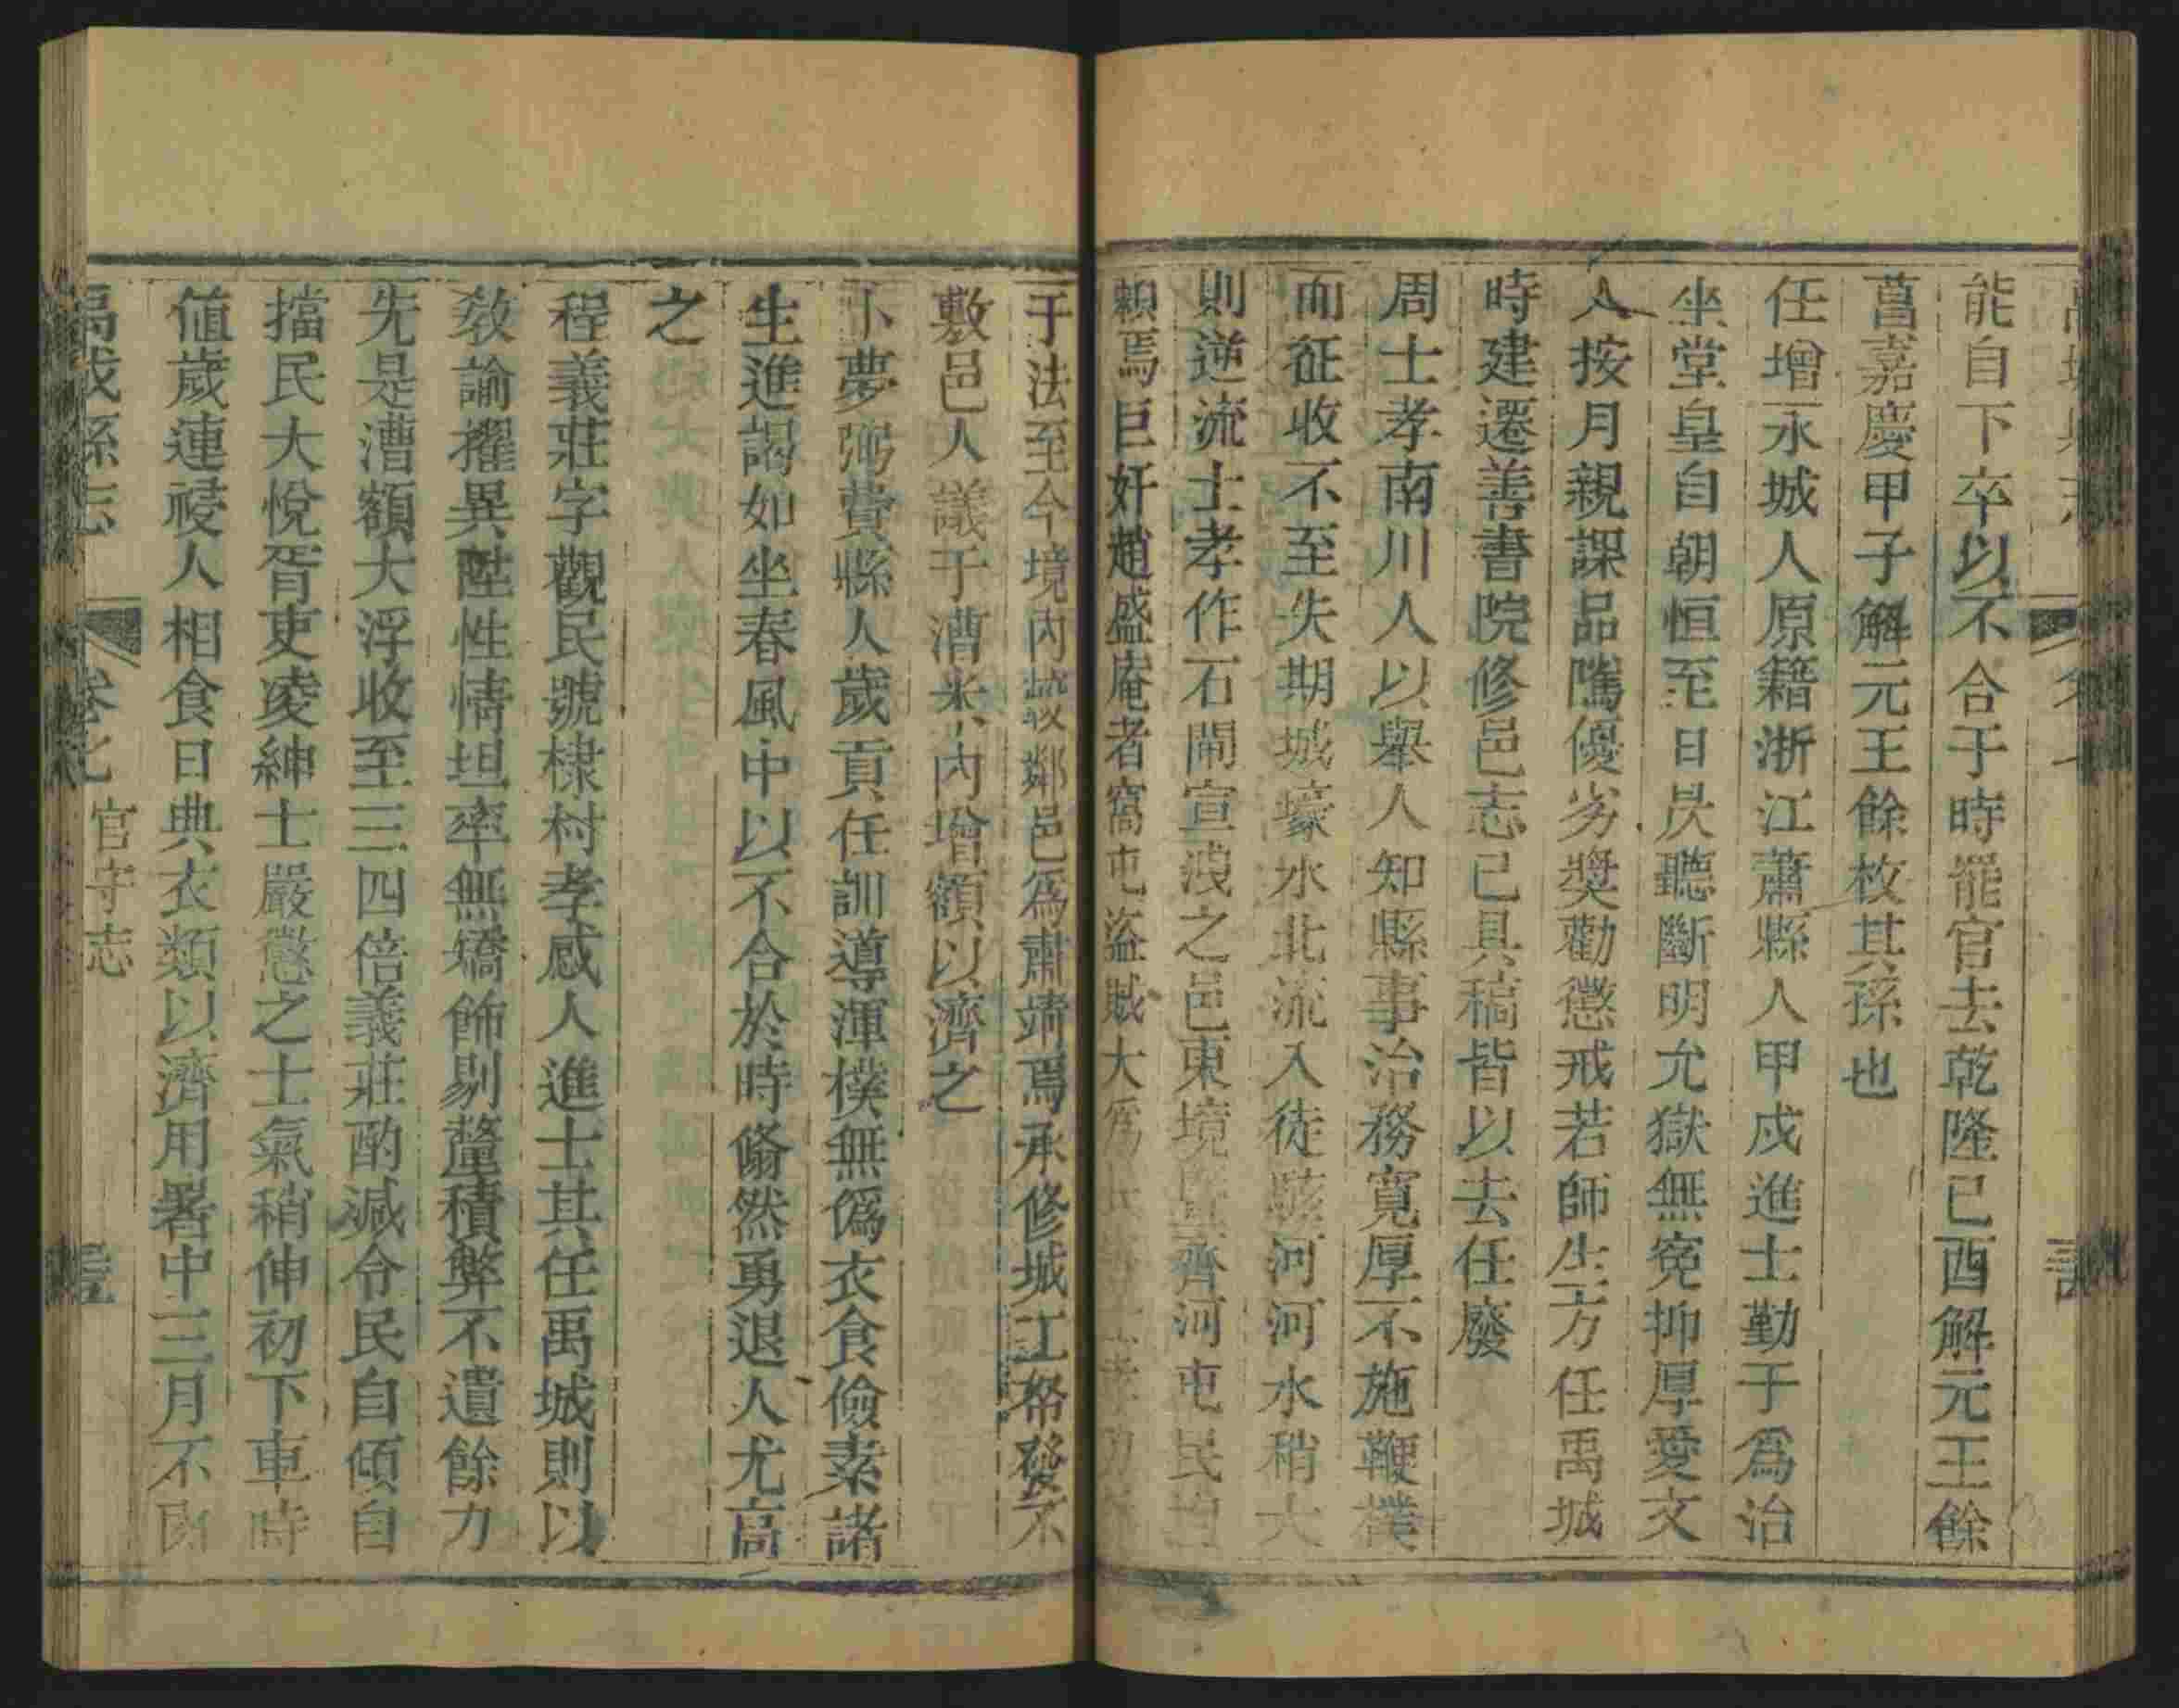 能自下卒以不合于時罷官去乾隆已酉解元王餘
菖嘉慶甲子解元王餘枚其孫也
任增永城人原籍浙江蕭縣人甲戍進士勤于爲治
坐堂皇自朝恒至日昃聽斷明允獄無寃抑厚愛文
人按月親課品隲優劣奬勸懲戒若師生方任禹城
時建遷善書院修邑志已具稿皆以去任廢
周士孝南川人以舉人知縣事治務寬厚不施鞭樸
而征收不至失期城壕水北流入徒駭河河水稍大
則逆流士孝作石閘宣洩之邑東境齊河屯民
賴焉巨奸趙盛庵者窩屯盜賊大爲
于法至今境內鄰邑爲肅靖焉承修城工帑發不
敷邑人議于漕米內增額以濟之
卜夢弼費縣人歲貢任訓導渾樸無僞衣食儉素諸
生進謁如坐春風中以不合於時翛然勇退人尤高
之
程義莊字觀民號棣村孝感人進士其任禹城則以
敎諭擢異陞性情坦率無矯飾剔釐積弊不遺餘力
先是漕額大浮收至三四倍義莊酌減令民自傾自
擋民大悅胥吏凌紳士嚴懲之士氣稍伸初下車時
値歲連祲人相食日典衣類以濟用署中三月不
禹城縣志 卷七 官守志